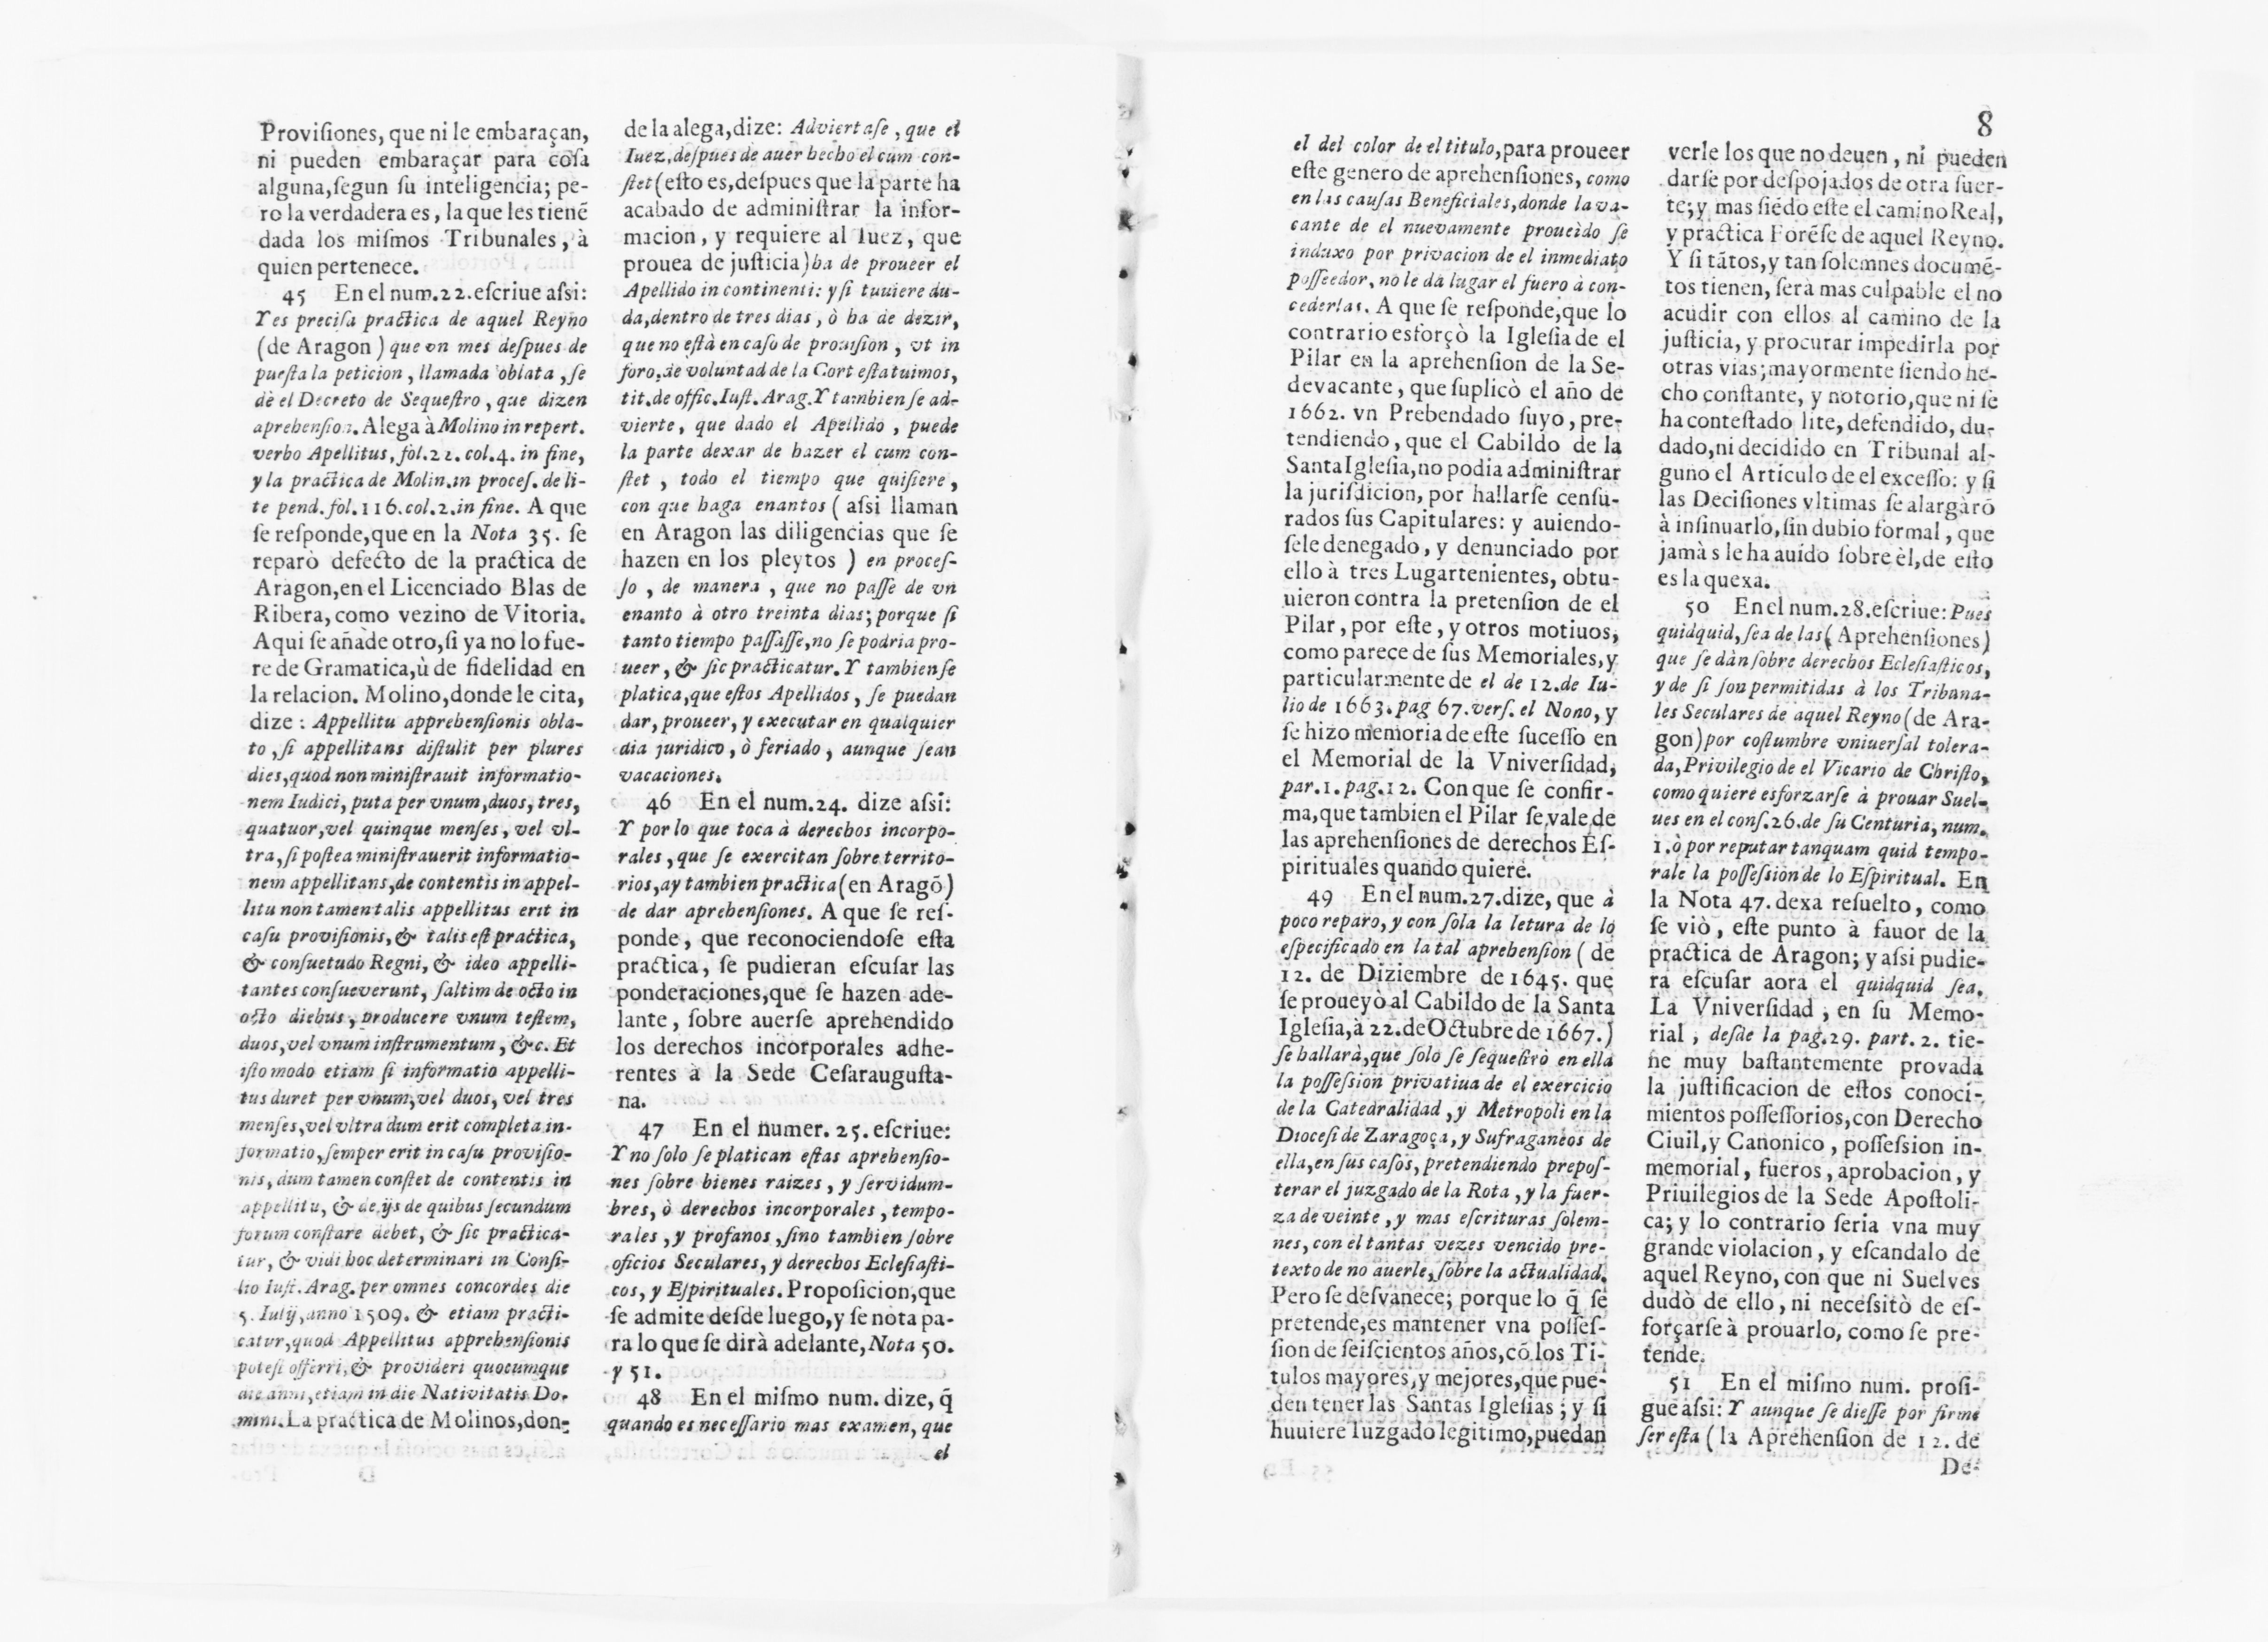 Proviſiones, que ni le embaraçan,
ni pueden embaraçar para coſa
alguna, ſegun ſu inteligencia; pe-
ro la verdadera es, la que les tienẽ
dada los miſmos Tribunales, à
quien pertenece.
45 En el num. 22. eſcriue aſsi:
Y es preciſa practica de aquel Reyno
(de Aragon) que vn mes deſpues de
pueſta la peticion, llamada oblata, ſe
dè el Decreto de Sequeſtro, que dizen
aprehenſion. Alega à Molino in repert.
verbo Apellitus, fol. 22. col. 4. in fine,
y la practica de Molin. in proceſ. de li-
te pend. fol. 116. col. 2. in fine. A que
ſe reſponde, que en la Nota 35. ſe
reparò defecto de la practica de
Aragon, en el Licenciado Blas de
Ribera, como vezino de Vitoria.
Aqui ſe añade otro, ſi ya no lo fue-
re de Gramatica, ù de fidelidad en
la relacion. Molino, donde le cita,
dize: Appellitu apprehenſionis obla-
to, ſi appellitans diſtulit per plures
dies, quod non miniſtrauit informatio-
nem Iudici, puta per vnum, duos, tres,
quatuor, vel quinque menſes, vel vl-
tra, ſi poſtea miniſtrauerit informatio-
nem appellitans, de contentis in appel-
litu non tamen talis appellitus erit in
caſu proviſionis, & talis eſt practica,
& conſuetudo Regni, & ideo appelli-
tantes conſueverunt, ſaltim de octo in
octo diebus, producere vnum teſtem,
duos, vel vnum inſtrumentum, &c. Et
iſto modo etiam ſi informatio appelli-
tus duret per vnum, vel duos, vel tres
menſes, vel vltra dum erit completa in-
formatio, ſemper erit in caſu proviſio-
nis, dum tamen conſtet de contentis in
appellitu, & de ijs de quibus ſecundum
forum conſtare debet, & ſic practica-
tur, & vidi hoc determinari in Conſi-
lio Iuſt. Arag. per omnes concordes die
5. Iulij, anno 1509. & etiam practi-
catur, quod Appellitus apprehenſionis
poteſt offerri, & provideri quocumque
die anni, etiam in die Nativitatis Do-
mini. La practica de Molinos, don-
de la alega, dize: Adviertaſe, que el
Iuez, deſpues de auer hecho el cum con-
ſtet (eſto es, deſpues que la parte ha
acabado de adminiſtrar la infor-
macion, y requiere al Iuez, que
prouea de juſticia) ha de proueer el
Apellido in continenti: y ſi tuuiere du-
da, dentro de tres dias, ò ha de dezir,
que no eſtà en caſo de prouiſion, vt in
foro, de voluntad de la Cort eſtatuimos,
tit. de offic. Iuſt. Arag. Y tambien ſe ad-
vierte, que dado el Apellido, puede
la parte dexar de hazer el cum con-
ſtet, todo el tiempo que quiſiere,
con que haga enantos (aſsi llaman
en Aragon las diligencias que ſe
hazen en los pleytos) en proceſ-
ſo, de manera, que no paſſe de vn
enanto à otro treinta dias; porque ſi
tanto tiempo paſſaſſe, no ſe podria pro-
ueer, & ſic practicatur. Y tambien ſe
platica, que eſtos Apellidos, ſe puedan
dar, proueer, y executar en qualquier
dia juridico, ò feriado, aunque ſean
vacaciones.
46 En el num. 24. dize aſsi:
Y por lo que toca à derechos incorpo-
rales, que ſe exercitan ſobre territo-
rios, ay tambien practica (en Aragõ)
de dar aprehenſiones. A que ſe reſ-
ponde, que reconociendoſe eſta
practica, ſe pudieran eſcuſar las
ponderaciones, que ſe hazen ade-
lante, ſobre auerſe aprehendido
los derechos incorporales adhe-
rentes à la Sede Ceſarauguſta-
na.
47 En el numer. 25. eſcriue:
Y no ſolo ſe platican eſtas aprehenſio-
nes ſobre bienes raizes, y ſervidum-
bres, ò derechos incorporales, tempo-
rales, y profanos, ſino tambien ſobre
oficios Seculares, y derechos Ecleſiaſti-
cos, y Eſpirituales. Propoſicion, que
ſe admite deſde luego, y ſe nota pa-
ra lo que ſe dirà adelante, Nota 50.
y 51.
48 En el miſmo num. dize, q̃
quando es neceſſario mas examen, que
el
8
el del color de el titulo, para proueer
eſte genero de aprehenſiones, como
en las cauſas Beneficiales, donde la va-
cante de el nuevamente proueido ſe
induxo por privacion de el inmediato
poſſeedor, no le dà lugar el fuero à con-
cederlas. A que ſe reſponde, que lo
contrario esforçò la Igleſia de el
Pilar en la aprehenſion de la Se-
devacante, que ſuplicò el año de
1662. vn Prebendado ſuyo, pre-
tendiendo, que el Cabildo de la
Santa Igleſia, no podia adminiſtrar
la juriſdicion, por hallarſe cenſu-
rados ſus Capitulares: y auiendo-
ſele denegado, y denunciado por
ello à tres Lugartenientes, obtu-
uieron contra la pretenſion de el
Pilar, por eſte, y otros motiuos,
como parece de ſus Memoriales, y
particularmente de el de 12. de Iu-
lio de 1663. pag 67. verſ. el Nono, y
ſe hizo memoria de eſte ſuceſſo en
el Memorial de la Vniverſidad,
par. 1. pag. 12. Con que ſe confir-
ma, que tambien el Pilar ſe vale de
las aprehenſiones de derechos Eſ-
pirituales quando quiere.
49 En el num. 27. dize, que à
poco reparo, y con ſola la letura de lo
eſpecificado en la tal aprehenſion (de
12. de Diziembre de 1645. que
ſe proueyò al Cabildo de la Santa
Igleſia, à 22. de Octubre de 1667.)
ſe hallarà, que ſolo ſe ſequeſtrò en ella
la poſſeſsion privatiua de el exercicio
de la Catedralidad, y Metropoli en la
Dioceſi de Zaragoça, y Sufraganeos de
ella, en ſus caſos, pretendiendo prepoſ-
terar el juzgado de la Rota, y la fuer-
za de veinte, y mas eſcrituras ſolem-
nes, con el tantas vezes vencido pre-
texto de no auerle, ſobre la actualidad.
Pero ſe deſvanece; porque lo q̃ ſe
pretende, es mantener vna poſſeſ-
ſion de ſeiſcientos años, cõ los Ti-
tulos mayores, y mejores, que pue-
den tener las Santas Igleſias; y ſi
huuiere Iuzgado legitimo, puedan
verle los que no deuen, ni pueden
darſe por deſpojados de otra ſuer-
te; y mas ſiẽdo eſte el camino Real,
y practica Forẽſe de aquel Reyno.
Y ſi tãtos, y tan ſolemnes documẽ-
tos tienen, ſerà mas culpable el no
acudir con ellos al camino de la
juſticia, y procurar impedirla por
otras vias; mayormente ſiendo he-
cho conſtante, y notorio, que ni ſe
ha conteſtado lite, defendido, du-
dado, ni decidido en Tribunal al-
guno el Articulo de el exceſſo: y ſi
las Deciſiones vltimas ſe alargàrõ
à inſinuarlo, ſin dubio formal, que
jamàs le ha auido ſobre èl, de eſto
es la quexa.
50 En el num. 28. eſcriue: Pues
quidquid, ſea de las (Aprehenſiones)
que ſe dàn ſobre derechos Ecleſiaſticos,
y de ſi ſon permitidas à los Tribuna-
les Seculares de aquel Reyno (de Ara-
gon) por coſtumbre vniuerſal tolera-
da, Privilegio de el Vicario de Chriſto,
como quiere esforzarſe à prouar Suel-
ues en el conſ. 26. de ſu Centuria, num.
1. ò por reputar tanquam quid tempo-
rale la poſſeſsion de lo Eſpiritual. En
la Nota 47. dexa reſuelto, como
ſe viò, eſte punto à fauor de la
practica de Aragon; y aſsi pudie-
ra eſcuſar aora el quidquid ſea.
La Vniverſidad, en ſu Memo-
rial, deſde la pag. 29. part. 2. tie-
ne muy baſtantemente provada
la juſtificacion de eſtos conoci-
mientos poſſeſſorios, con Derecho
Ciuil, y Canonico, poſſeſsion in-
memorial, fueros, aprobacion, y
Priuilegios de la Sede Apoſtoli-
ca; y lo contrario ſeria vna muy
grande violacion, y eſcandalo de
aquel Reyno, con que ni Suelves
dudò de ello, ni neceſsitò de eſ-
forçarſe à prouarlo, como ſe pre-
tende.
51 En el miſmo num. proſi-
gue aſsi: Y aunque ſe dieſſe por firme
ſer eſta (la Aprehenſion de 12. de
De-